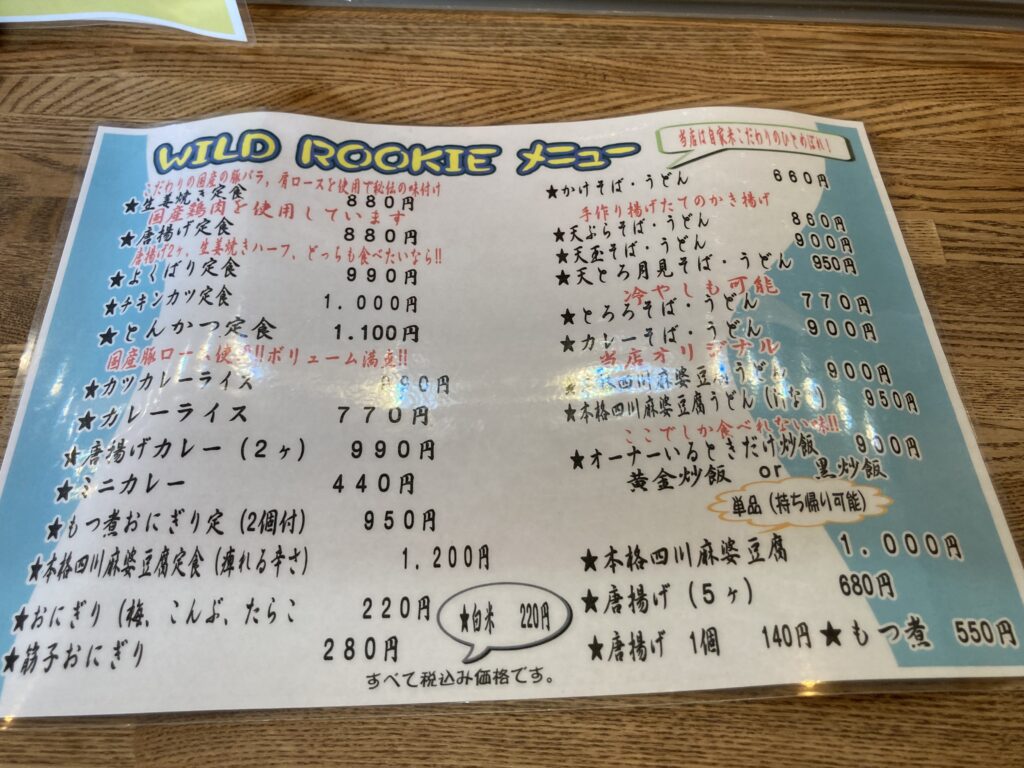 WILD ROOKIE メニュー
当店は自家米こだわりのひとめぼれ!
こだわりの国産の豚バラ、肩ロースを使用で秘伝の味付け
★生姜焼き定食 880円
国産鶏肉を使用しています
★唐揚げ定食 880円
唐揚げ2ヶ、生姜焼きハーフ、どっちも食べたいなら!!
★よくばり定食 990円
★チキンカツ定食 1.000円
★とんかつ定食 1.100円
国産豚ロース使 !!ボリューム満点!!
★カツカレーライス 990円
★カレーライス 770円
★唐揚げカレー(2ヶ) 990円
★ミニカレー 440円
★もつ煮おにぎり定(2個付) 950円
★本格四川麻婆豆腐定食(痺れる辛さ) 1.200円
★おにぎり(梅、こんぶ、たらこ 220円
★筋子おにぎり 280円
★白米 220円
すべて税込み価格です。
★かけそば・うどん 660円
手作り揚げたてのかき揚げ
★天ぷらそば・うどん 860円
★天玉そば・うどん 900円
★天とろ月見そば・うどん 950円
冷やしも可能
★とろろそば・うどん 770円
★カレーそば・うどん 900円
当店オリジナル
格四川麻婆豆腐うどん 900円
★本格四川麻婆豆腐うどん 950円
ここでしか食べれない味!!
★オーナーいるときだけ炒飯 900円
黄金炒飯 or 黒炒飯
単品(持ち帰り可能)
★本格四川麻婆豆腐 1.000円
★唐揚げ(5ヶ) 680円
★唐揚げ 1個 140円 ★もつ煮 550円